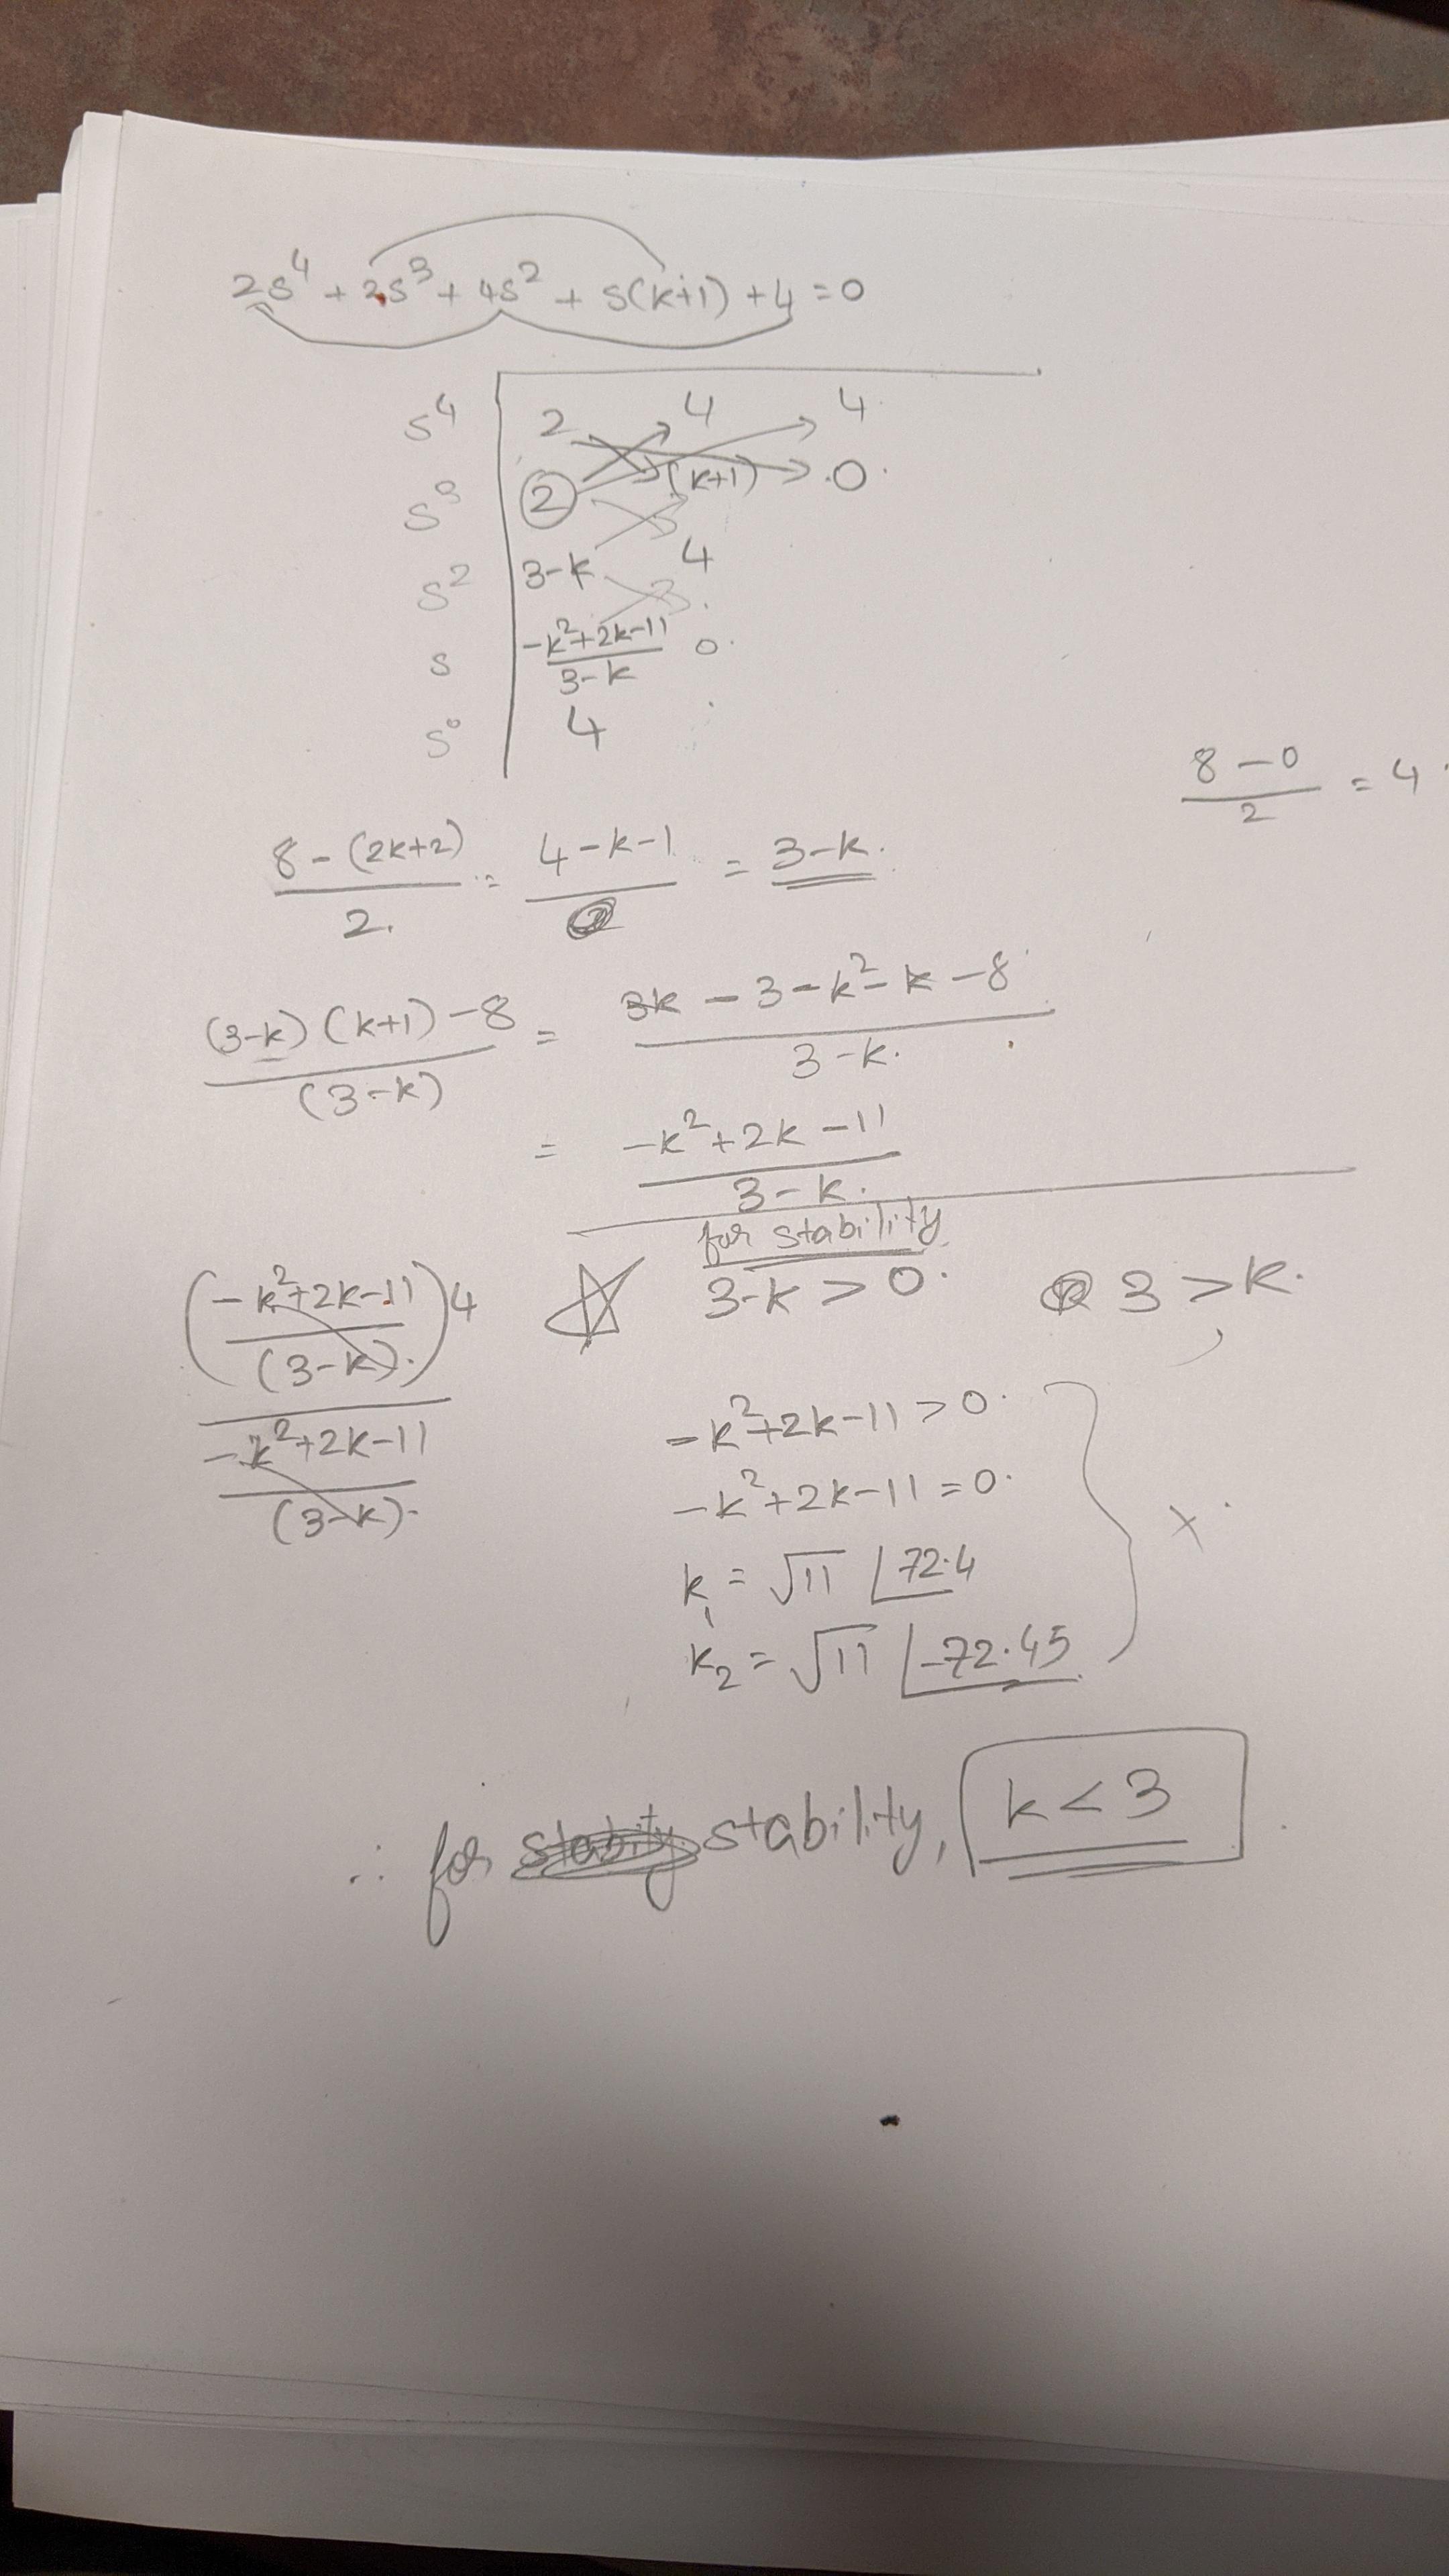 2s⁴ + 2s³ + 4s² + s(k+1) + 4 = 0
s⁴ 2 4 4
s³ 2 (k+1) 0
s² 3-k 4
s (-k²+2k-11)/(3-k) 0
s⁰ 4
(8-0)/2 = 4
(8-(2k+2))/2 = (4-k-1) = 3-k
((3-k)(k+1)-8)/(3-k) = (3k-3-k²-k-8)/(3-k)
= (-k²+2k-11)/(3-k)
for stability
3-k > 0 3 > k
((-k²+2k-11)/(3-k))4
(-k²+2k-11)/(3-k)
-k²+2k-11 > 0
-k²+2k-11 = 0
k₁ = √11 ∠72.4
k₂ = √11 ∠-72.45
x
∴ for stability, k < 3